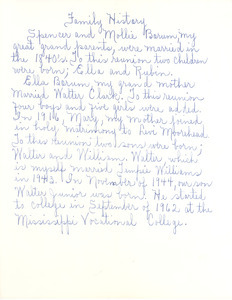 Family History
Spencer and Mollie Borum, my
great grand parents, were married in
the 1840's. To this reunion two children
were born; Ella and Rubin.
Ella Borum, my grand mother
Married Walter Clark. To this reunion
four boys and five girls were added.
In 1916, Mary, my mother joined
in holy matrimony to Rivi Moorehead
To this reunion two sons were born;
Walter and William. Walter, which
is myself married Tempie Williams
in 1943. In November of 1944, our son
Walter Junior was born. He started
to college in September of 1962 at the
Mississippi Vocational College.